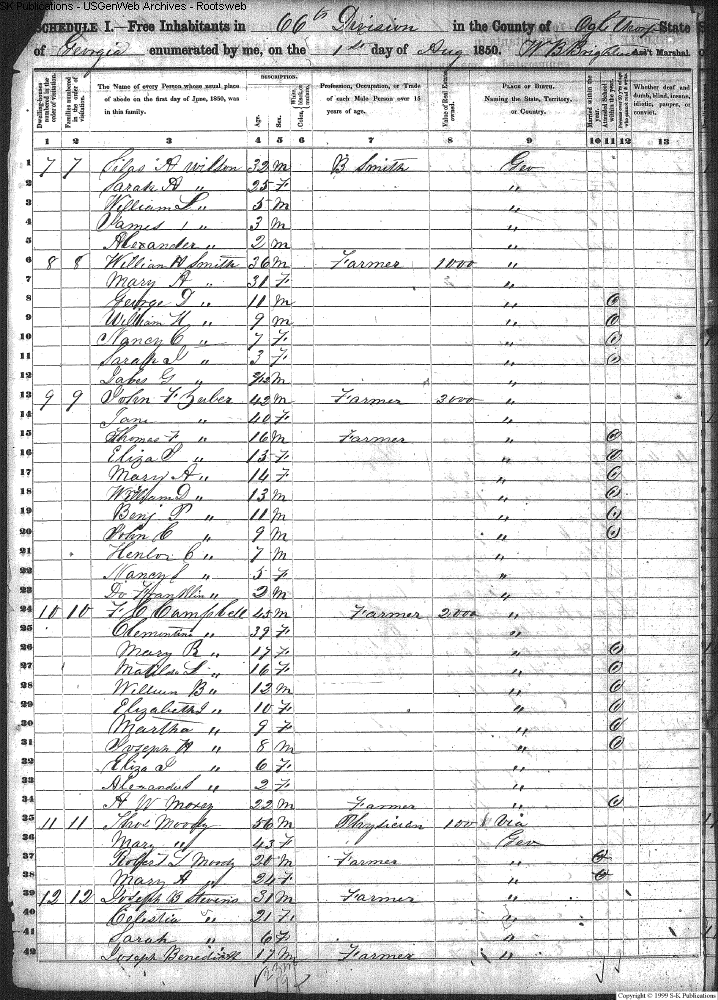 SK Publications - USGenWeb Archives - Rootsweb
SCHEDULE I.—Free Inhabitants in 66th Division in the County of Oglethorp State
of Georgia enumerated by me, on the 1st day of Aug 1850. W B Ass't Marshal
Dwelling-houses numbered in the order of visitation.
Families numbered in the order of visitation.
The Name of every Person whose usual place of abode on the first day of June, 1850, was in this family.
DESCRIPTION.
Age.
Sex.
White, black, or mulatto.
Profession, Occupation, or Trade of each Male Person over 15 years of age.
Value of Real Estate owned.
PLACE OF BIRTH. Naming the State, Territory, or Country.
Married within the year.
Attended School within the year.
Whether deaf and dumb, blind, insane, idiotic, pauper, or convict.
1 2 3 4 5 6 7 8 9 10 11 12 13
1 7 7 Silas A Wilson 32 M B Smith Geo
2 Sarah A " 25 F "
3 William L " 5 M "
4 James " 3 M "
5 Alexander " 2 M "
6 8 8 William H Smith 36 M Farmer 1000 "
7 Mary A " 31 F "
8 George D " 11 M "
9 William H " 9 M "
10 Nancy C " 7 F "
11 Sarah J " 3 F "
12 Jabes G " /12 M "
13 9 9 John F Zuber 42 M Farmer 3000 "
14 Jane " 40 F "
15 Thomas F " 16 M Farmer "
16 Eliza P " 15 F "
17 Mary A " 14 F "
18 William D " 13 M "
19 Benj P " 11 M "
20 John C " 9 M "
21 C " 7 M "
22 Nancy " 5 F "
23 Do Franklin " 2 M "
24 10 10 F C Campbell 45 M Farmer 2000 "
25 Clementine " 39 F "
26 Mary R " 17 F "
27 Matilda L " 16 F "
28 William B " 12 M "
29 Elizabeth J " 10 F "
30 Martha " 9 F "
31 Joseph H " 8 M "
32 Eliza J " 6 F "
33 Alexander " 2 F "
34 A W Moxey 22 M Farmer "
35 11 11 Thos Moody 56 M Physician 100 Via
36 Mary " 43 F Geo
37 Robert L Moody 20 M Farmer "
38 Mary A " 24 F "
39 12 12 Joseph B Stevens 31 M Farmer "
40 Celestia " 21 F "
41 Sarah " 6 F "
42 Joseph 17 M Farmer "
Copyright © 1999 S-K Publications